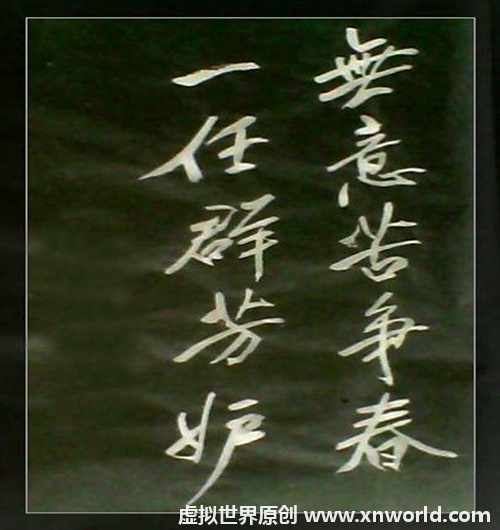 無意苦争春
一任群芳妒
虚拟世界原创 www.xnworld.com